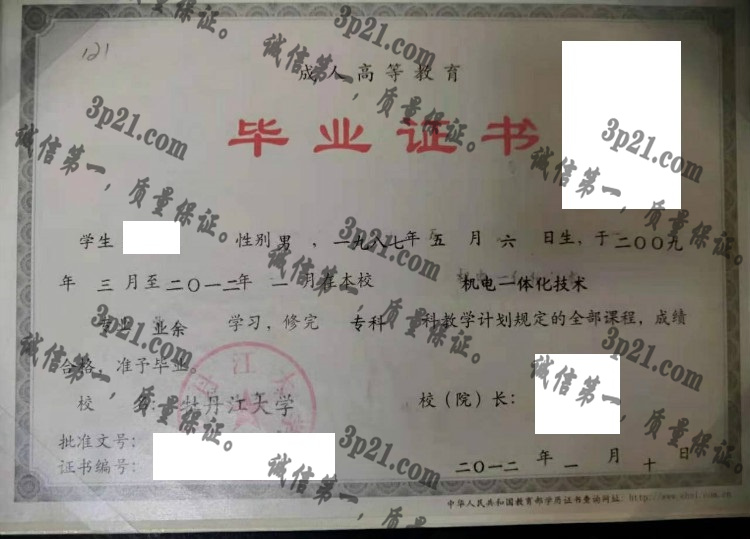 121
成人高等教育
毕业证书
学生 性别 男 ，一九八七年 五 月 六 日生，于二〇〇九
年 三 月至二〇一二年 一 月在本校 机电一体化技术
专业 业余 学习，修完 专科 科教学计划规定的全部课程，成绩
合格，准予毕业。
校 名：牡丹江大学 校（院）长：
批准文号：
证书编号： 二〇一二 年 一 月 十 日
中华人民共和国教育部学历证书查询网址 http://www.chsi.com.cn
3p21.com
诚信第一，质量保证。
3p21.com
诚信第一，质量保证。
3p21.com
诚信第一，质量保证。
3p21.com
诚信第一，质量保证。
3p21.com
诚信第一，质量保证。
3p21.com
诚信第一，质量保证。
3p21.com
诚信第一，质量保证。
3p21.com
诚信第一，质量保证。
3p21.com
诚信第一，质量保证。